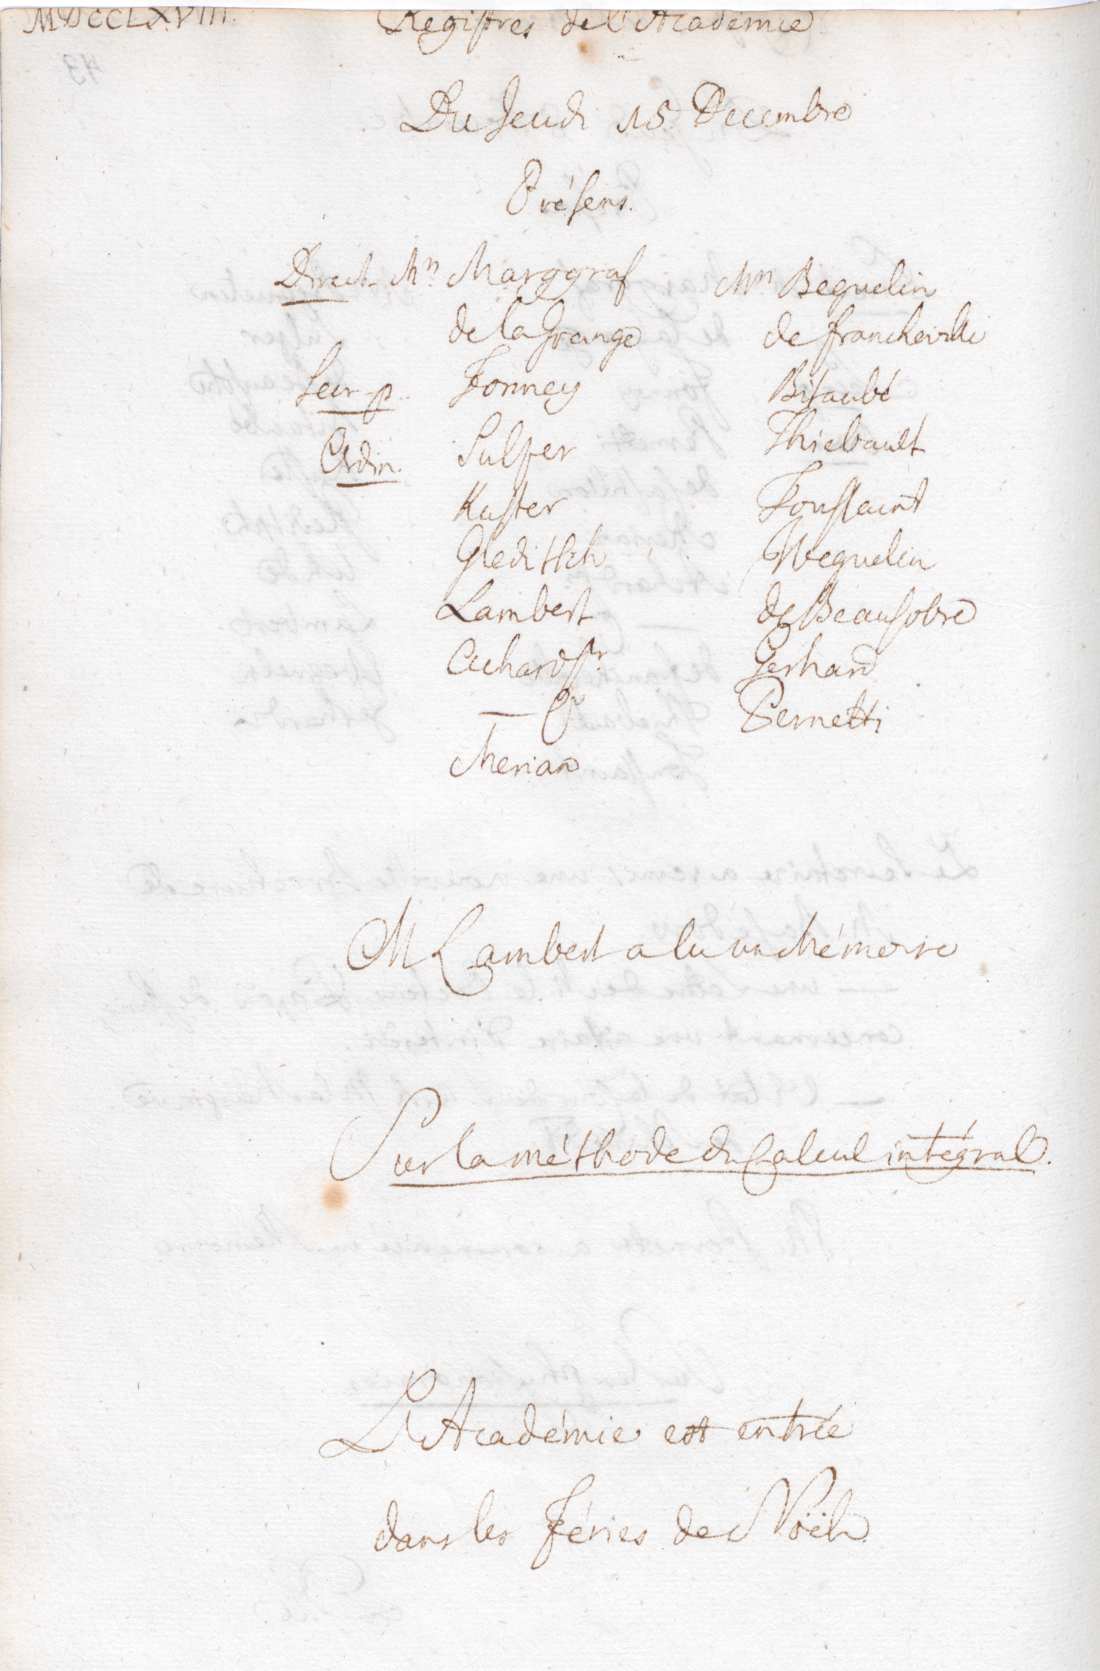 MDCCLXVIII.
Registres de l'Academie
Du Jeudi 15. Decembre
Présens.
Direct. Mrs Marggraf
de la Grange
Secr. p. Formey
Ordin. Sulzer
Kuster
Gleditsch
Lambert
Achard Sr
— Jr
Merian
Mrs Beguelin
de Francheville
Bitaubé
Thiebault
Toussaint
Weguelin
de Beausobre
Gerhard
Pernetti
M Lambert a lu un Mémoire
Sur la méthode du Calcul intégral.
L'Académie est entrée
dans les Féries de Noël.